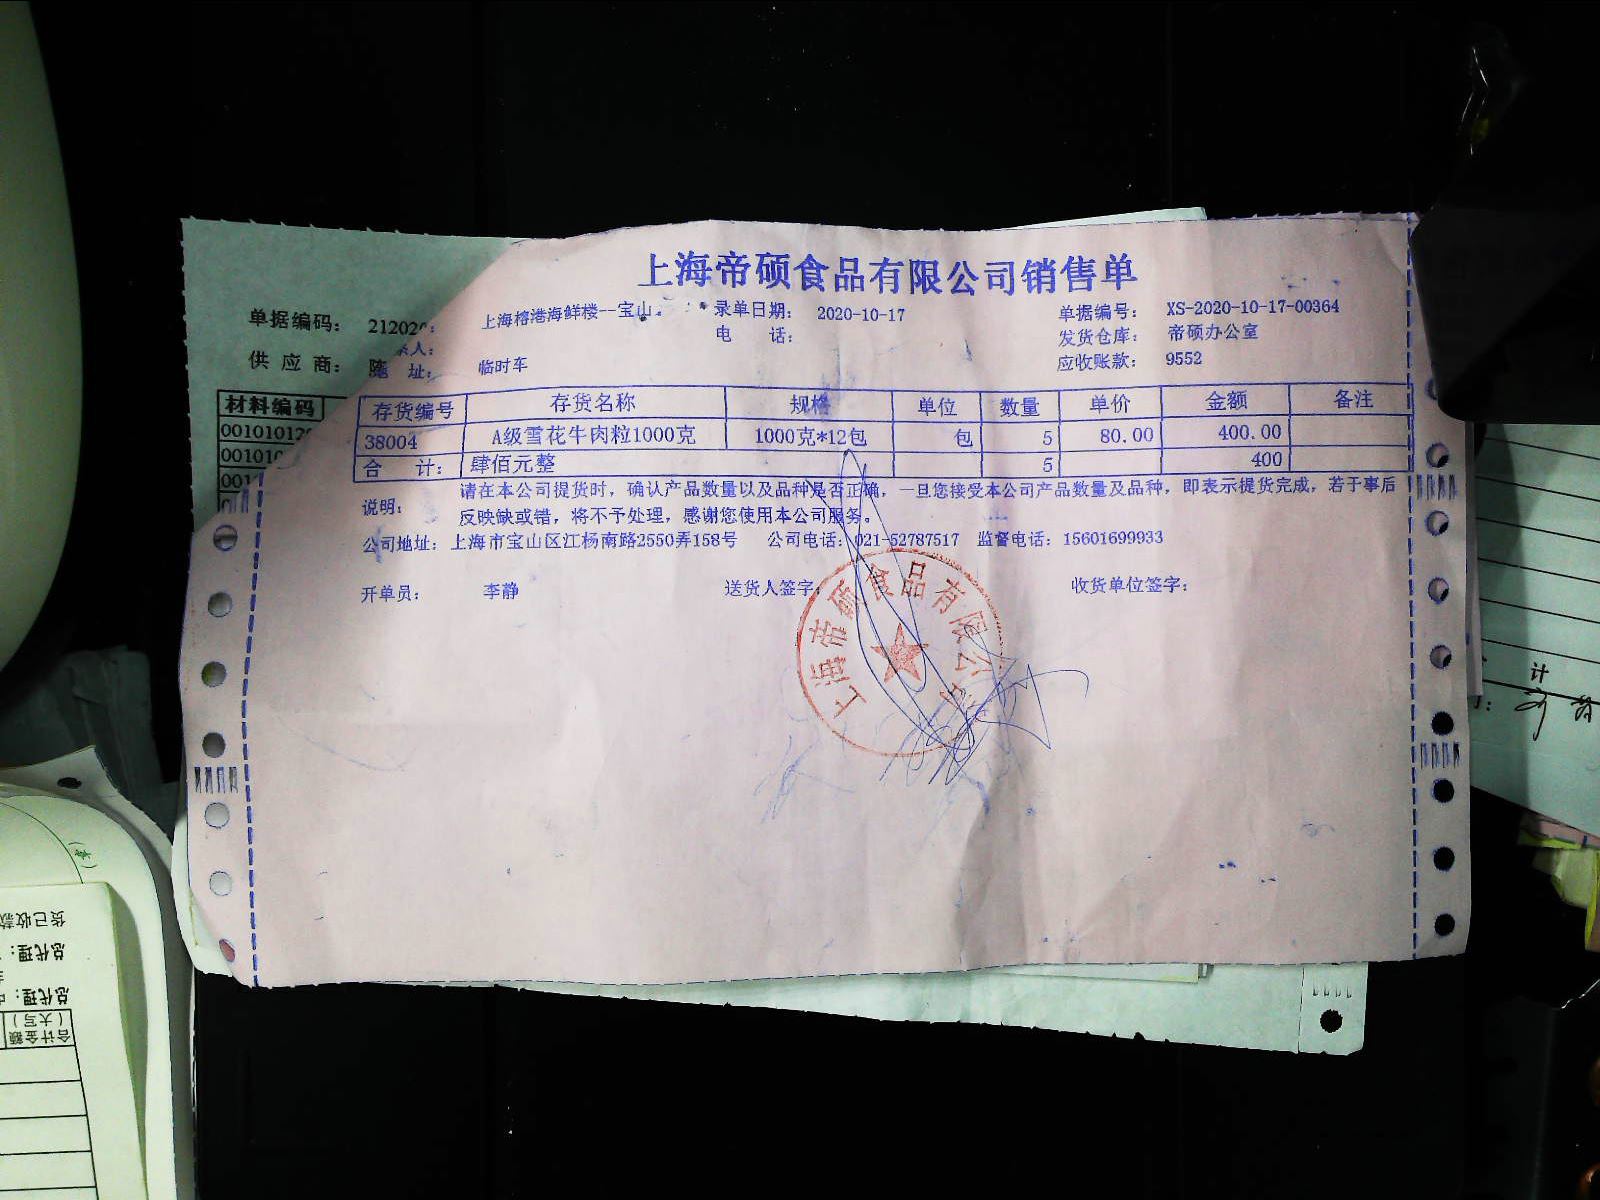 上海帝硕食品有限公司销售单
上海榕港海鲜楼--宝山 录单日期： 2020-10-17 单据编号： XS-2020-10-17-00364
单据编码： 21202
电 话： 发货仓库： 帝硕办公室
人：
供 应 商： 址： 临时车 应收账款： 9552
材料编码
存货编号 存货名称 规格 单位 数量 单价 金额 备注
00101012
38004 A级雪花牛肉粒1000克 1000克*12包 包 5 80.00 400.00
001010
合 计： 肆佰元整 5 400
001
说明： 请在本公司提货时，确认产品数量以及品种是否正确，一旦您接受本公司产品数量及品种，即表示提货完成，若于事后
反映缺或错，将不予处理，感谢您使用本公司服务。
公司地址：上海市宝山区江杨南路2550弄158号 公司电话：021-52787517 监督电话：15601699933
开单员： 李静 送货人签字： 收货单位签字：
上海帝硕食品有限公司
计
货已收款
总代理：
总代理：
（大写）
合计金额